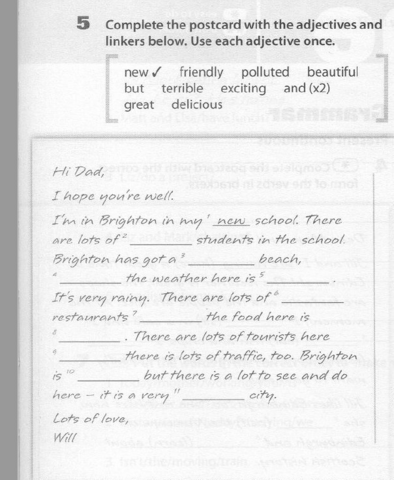 5 Complete the postcard with the adjectives and
linkers below. Use each adjective once.
new ✓ friendly polluted beautiful
but terrible exciting and (x2)
great delicious
Hi Dad,
I hope you're well.
I'm in Brighton in my ¹ new school. There
are lots of ² ________ students in the school.
Brighton has got a ³ ________ beach,
⁴ ________ the weather here is ⁵ ________ .
It's very rainy. There are lots of ⁶ ________
restaurants ⁷ ________ the food here is
⁸ ________ . There are lots of tourists here
⁹ ________ there is lots of traffic, too. Brighton
is ¹⁰ ________ but there is a lot to see and do
here – it is a very ¹¹ ________ city.
Lots of love,
Will